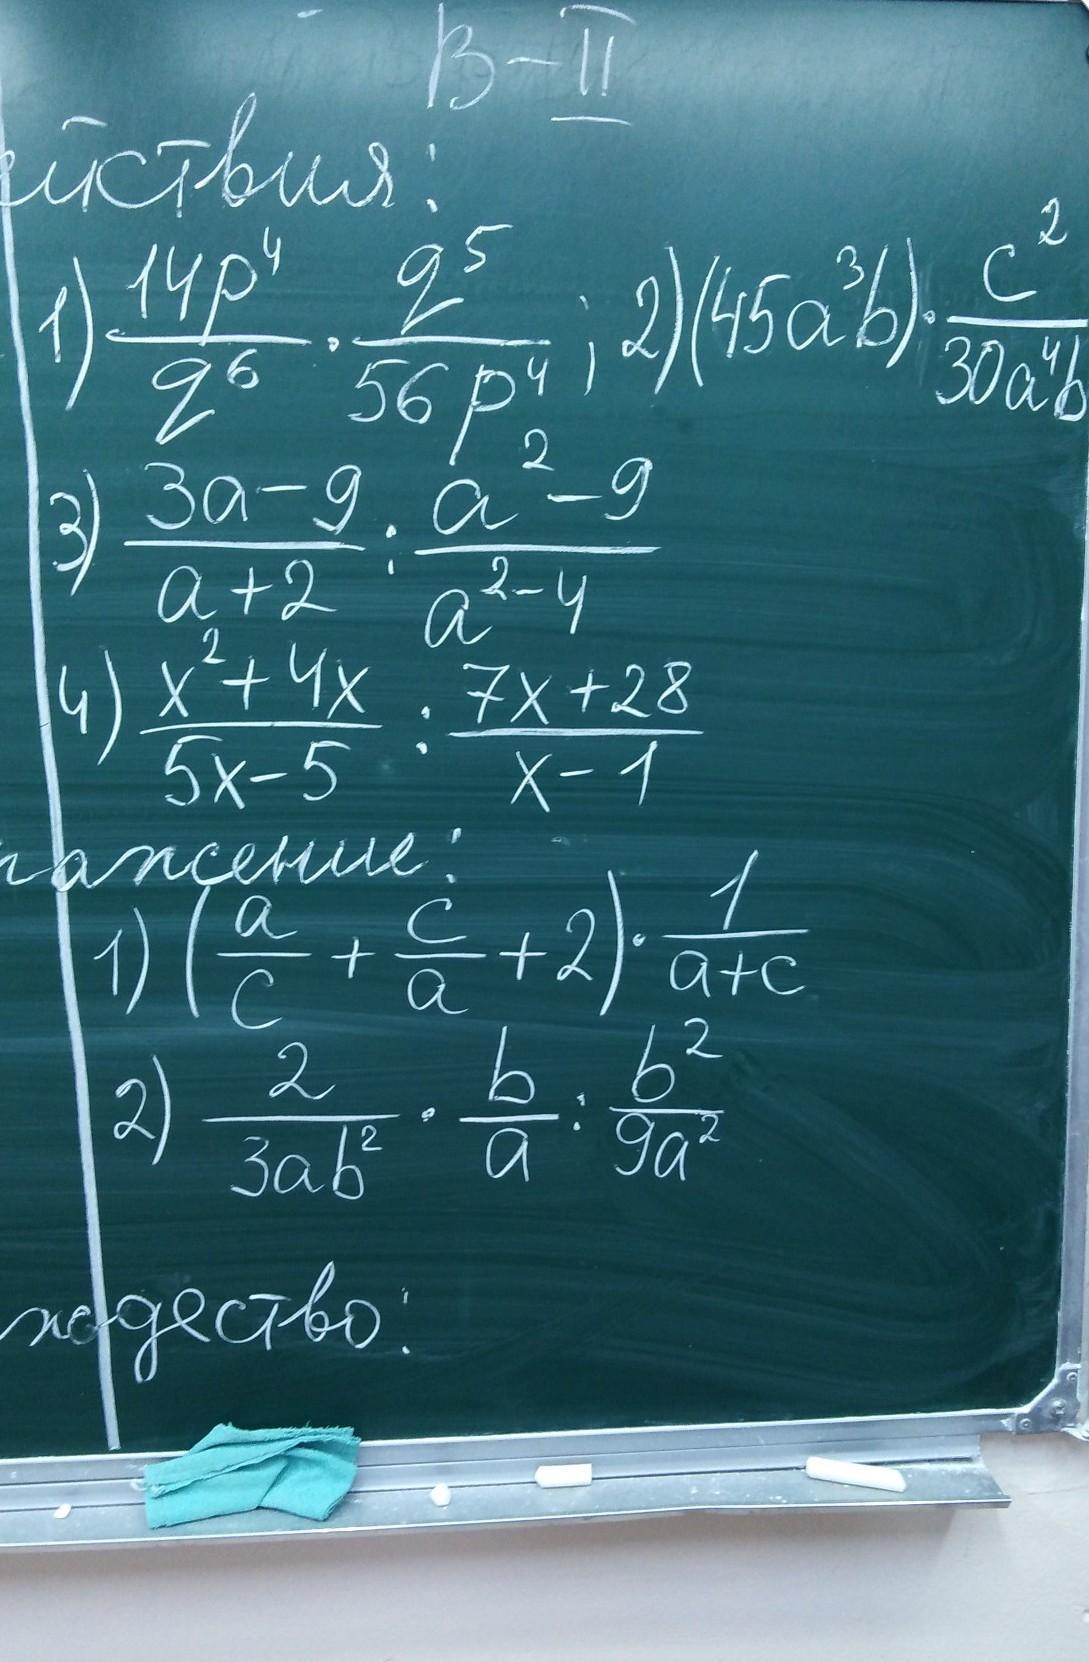 В-II
йствия:
1) 14p⁴/q⁶ · q⁵/56p⁴ ; 2) (45a³b) · c²/30a⁴b
3) 3a-9/a+2 : a²-9/a²-4
4) x²+4x/5x-5 : 7x+28/x-1
ражение:
1) (a/c + c/a + 2) · 1/a+c
2) 2/3ab² · b/a : b²/9a²
ждество: